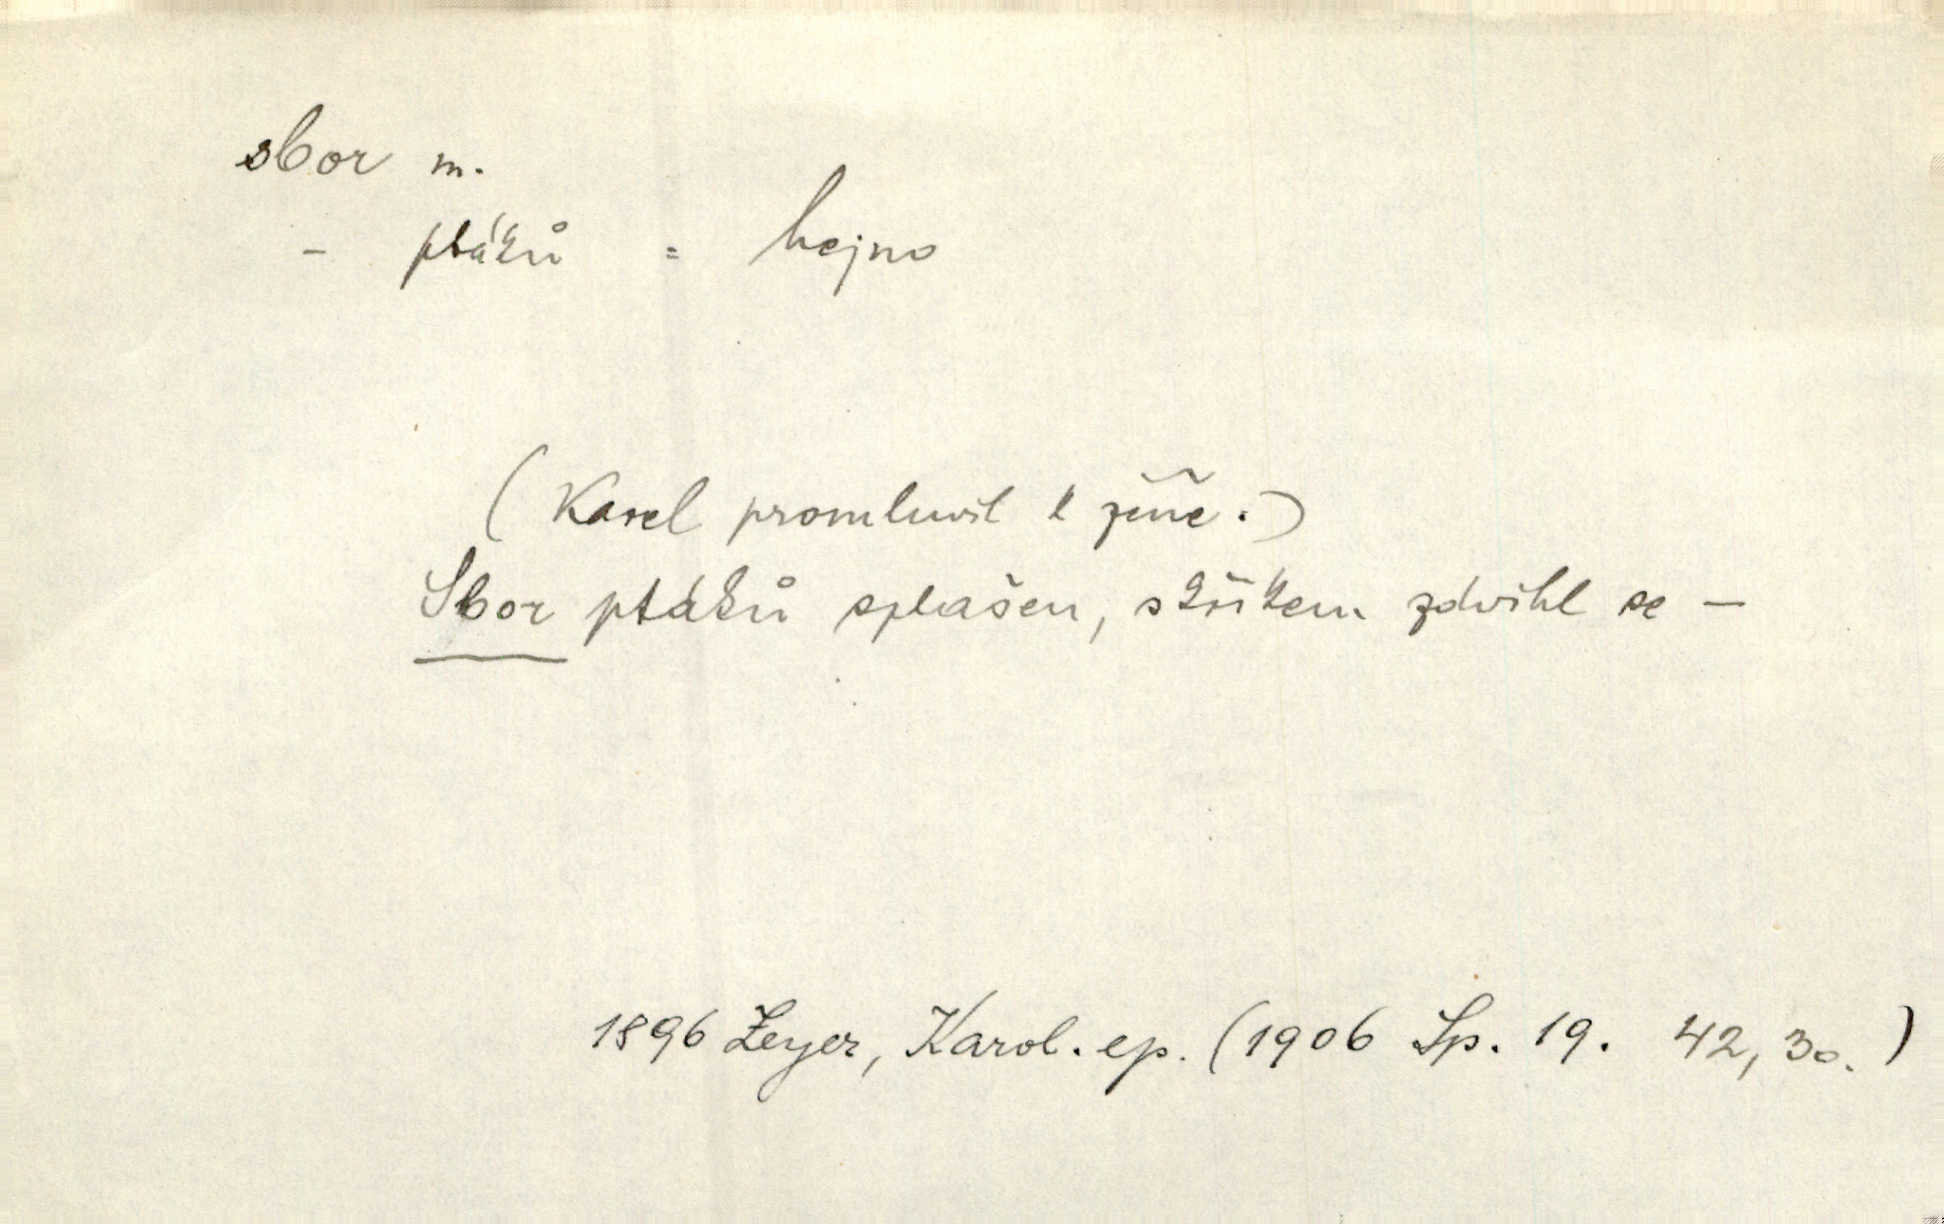 sbor m.
- ptáků = hejno
(Karel promluvil k
Sbor ptáků splašen, skřikem zdvihl se —
1896 Zeyer, Karol. ep. (1906 Sp. 19. 42, 30.)